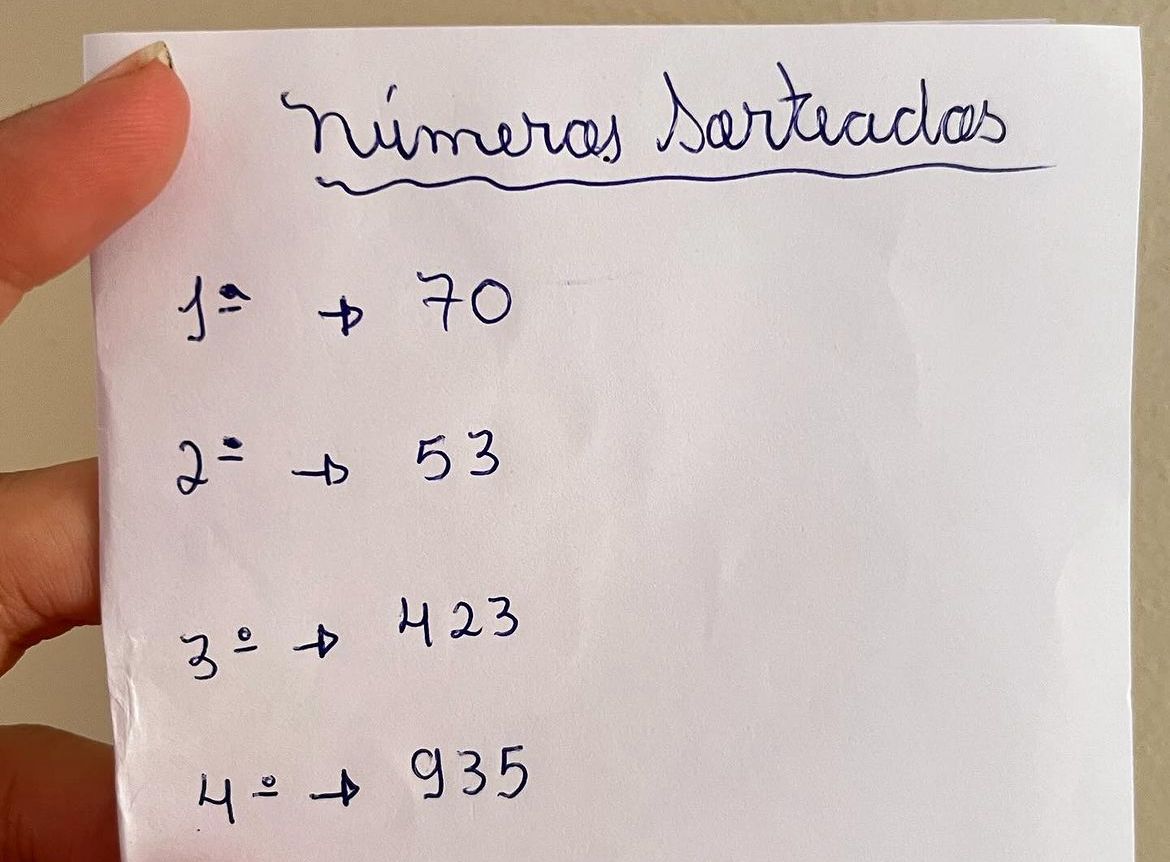 Números Sorteados
1º → 70
2º → 53
3º → 423
4º → 935